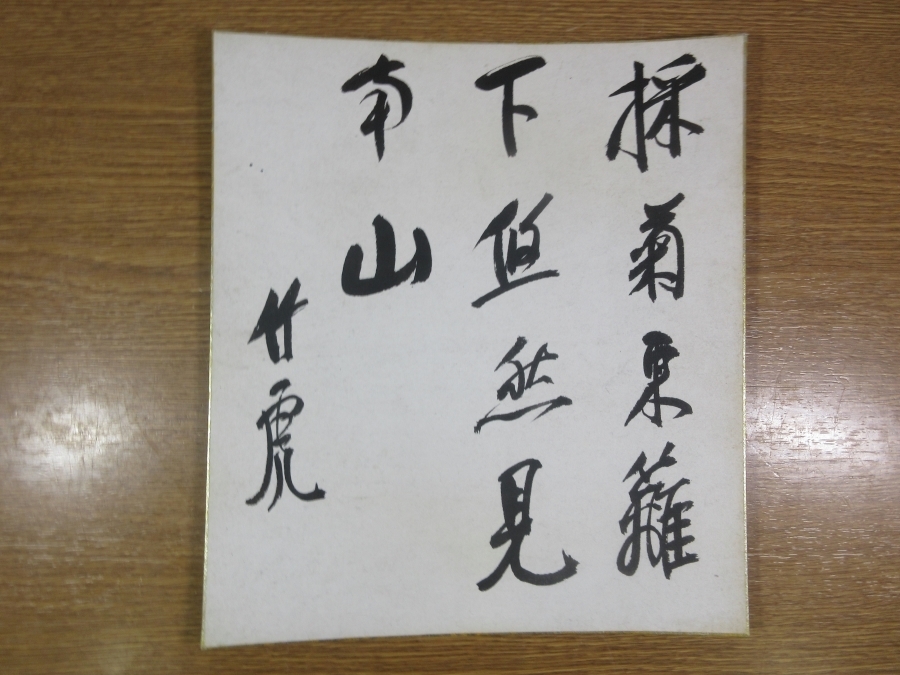 採菊東籬
下悠然見
南山
虎